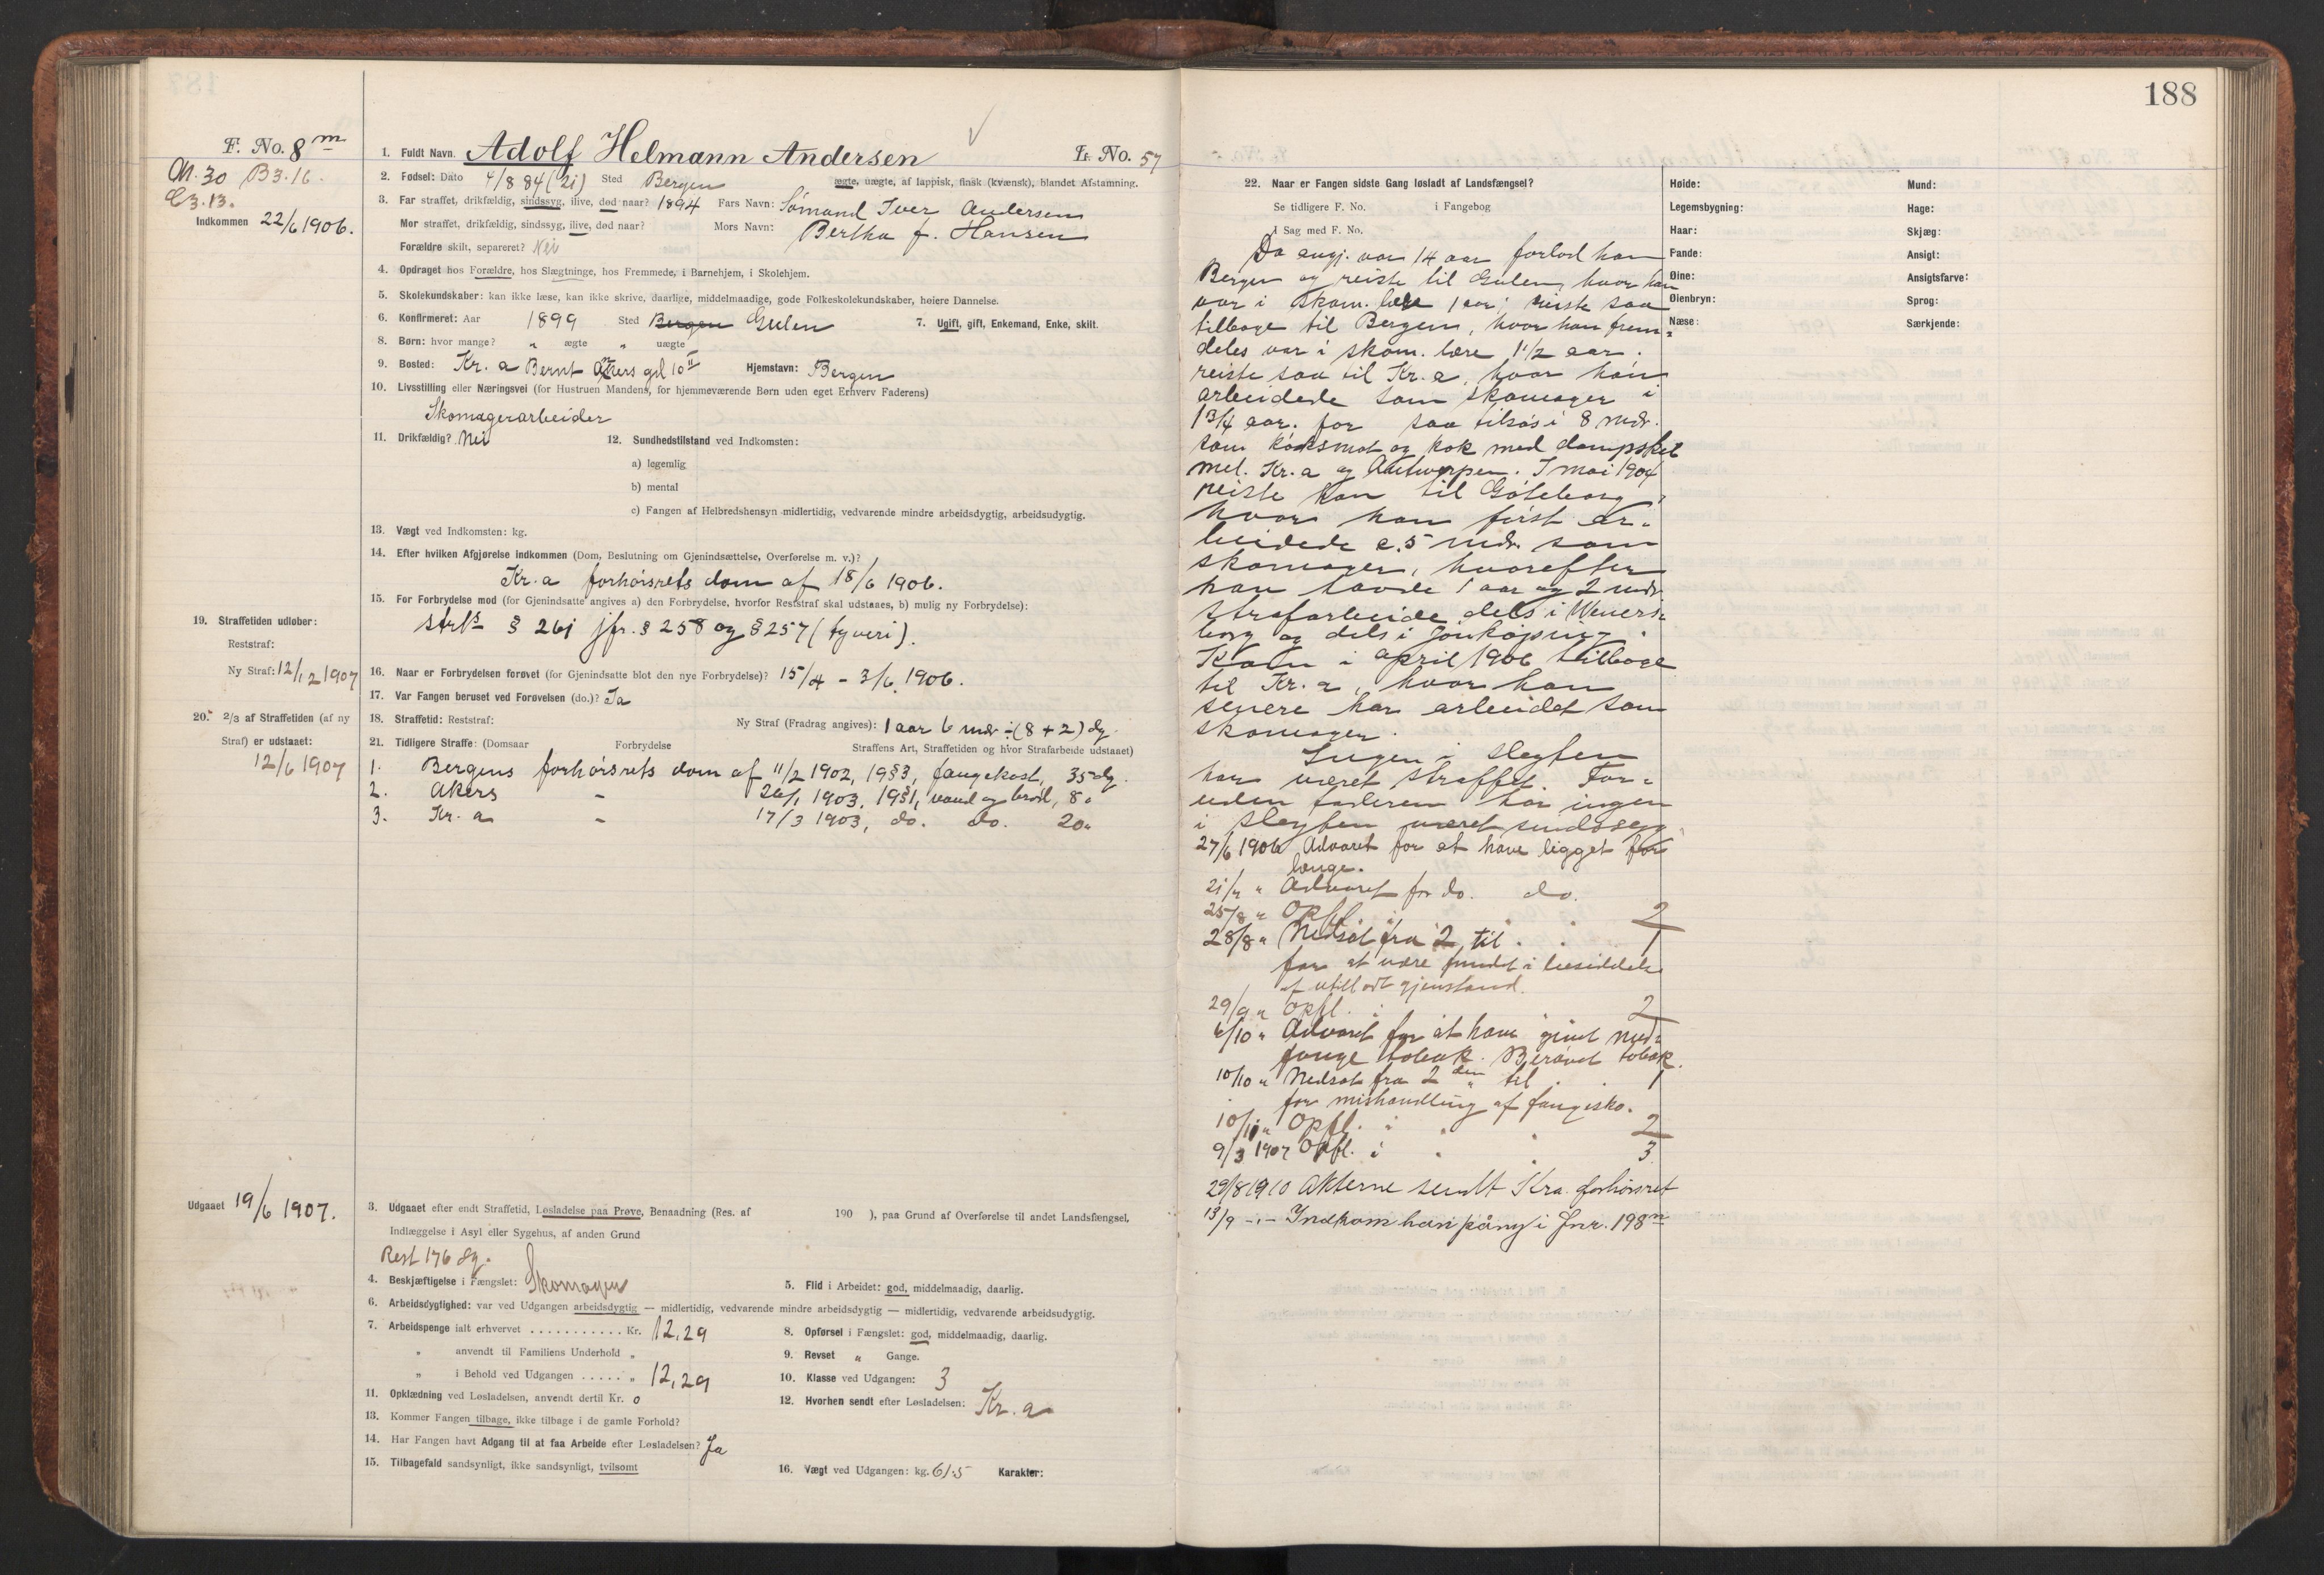 188
F. No. 8 m
A. 30 B3.16.
C3.13.
Indkommen 22/6 1906.
1. Fuldt Navn. Adolf Helmann Andersen
L. No. 57
2. Fødsel: Dato 4/8 84 (21) Sted Bergen ægte, uægte, af lappisk, finsk (kvænsk), blandet Afstamning.
3. Far straffet, drikfældig, sindssyg, ilive, død naar? 1894 Fars Navn: Sømand Iver Andersen
Mor straffet, drikfældig, sindssyg, ilive, død naar? Mors Navn: Bertha f. Hansen
Forældre skilt, separeret? Nei
4. Opdraget hos Forældre, hos Slægtninge, hos Fremmede, i Barnehjem, i Skolehjem.
5. Skolekundskaber: kan ikke læse, kan ikke skrive, daarlige, middelmaadige, gode Folkeskolekundskaber, høiere Dannelse.
6. Konfirmeret: Aar 1899 Sted Bergen Gulen 7. Ugift, gift, Enkemand, Enke, skilt.
8. Børn: hvor mange? " ægte " uægte
9. Bosted: Kr.a Bernt Ankers gd 10 II Hjemstavn: Bergen
10. Livsstilling eller Næringsvei (for Hustruen Mandens, for hjemmeværende Børn uden eget Erhverv Faderens)
Skomagerarbeider
11. Drikfældig? Nei 12. Sundhedstilstand ved Indkomsten:
a) legemlig
b) mental
c) Fangen af Helbredshensyn midlertidig, vedvarende mindre arbeidsdygtig, arbeidsudygtig.
13. Vægt ved Indkomsten: kg.
14. Efter hvilken Afgjørelse indkommen (Dom, Beslutning om Gjenindsættelse, Overførelse m. v.)?
Kr.a forhørsrets dom af 18/6 1906.
15. For Forbrydelse mod (for Gjenindsatte angives a) den Forbrydelse, hvorfor Reststraf skal udstaaes, b) mulig ny Forbrydelse):
strls § 261 jfr. § 258 og § 257 (tyveri).
19. Straffetiden udløber:
Reststraf:
Ny Straf: 12/12 1907
16. Naar er Forbrydelsen forøvet (for Gjenindsatte blot den nye Forbrydelse)? 15/4 - 3/6 1906.
17. Var Fangen beruset ved Forøvelsen (do.)? Ja
20. 2/3 af Straffetiden (af ny Straf) er udstaaet:
12/6 1907
18. Straffetid: Reststraf: Ny Straf (Fradrag angives): 1 aar 6 mdr ÷ (8 + 2) dg.
21. Tidligere Straffe: (Domsaar Forbrydelse Straffens Art, Straffetiden og hvor Strafarbeide udstaaet)
1. Bergens forhørsrets dom af 11/2 1902, 19§3, fangekost, 35 dg.
2. Akers - 26/1 1903, 19§1, vand og brød, 8 "
3. Kr.a - 17/3 1903, do. do. 20 "
Udgaaet 19/6 1907.
3. Udgaaet efter endt Straffetid, Løsladelse paa Prøve, Benaadning (Res. af 190 ), paa Grund af Overførelse til andet Landsfængsel,
Indlæggelse i Asyl eller Sygehus, af anden Grund
Rest 176 dg.
4. Beskjæftigelse i Fængslet: Skomager 5. Flid i Arbeidet: god, middelmaadig, daarlig.
6. Arbeidsdygtighed: var ved Udgangen arbeidsdygtig — midlertidig, vedvarende mindre arbeidsdygtig — midlertidig, vedvarende arbeidsudygtig.
7. Arbeidspenge ialt erhvervet ........... Kr. 12,29 8. Opførsel i Fængslet: god, middelmaadig, daarlig.
" anvendt til Familiens Underhold " 9. Revset " Gange.
" i Behold ved Udgangen ..... " 12,29 10. Klasse ved Udgangen: 3
11. Opklædning ved Løsladelsen, anvendt dertil Kr. 0 12. Hvorhen sendt efter Løsladelsen: Kr.a
13. Kommer Fangen tilbage, ikke tilbage i de gamle Forhold?
14. Har Fangen havt Adgang til at faa Arbeide efter Løsladelsen? Ja
15. Tilbagefald sandsynligt, ikke sandsynligt, tvilsomt 16. Vægt ved Udgangen: kg. 61.5 Karakter:
22. Naar er Fangen sidste Gang løsladt af Landsfængsel?
Se tidligere F. No. i Fangebog
I Sag med F. No.
Høide: Mund:
Legemsbygning: Hage:
Haar: Skjæg:
Pande: Ansigt:
Øine: Ansigtsfarve:
Øienbryn: Sprog:
Næse: Særkjende:
Da angj. var 14 aar forlod han
Bergen og reiste til Gulen, hvor han
var i skom. lære 1 aar; reiste saa
tilbage til Bergen, hvor han frem-
deles var i skom. lære 1 1/2 aar.
reiste saa til Kr.a, hvor han
arbeidede som skomager i
1 3/4 aar. for saa tilsøs i 8 mdr.
som koksmat og kok med dampskib
mel. Kr.a og Antwerpen. I mai 1904
reiste han til Gøteborg,
hvor han først ar-
beidede c. 5 mdr. som
skomager, hvorefter
han havde 1 aar og 2 mdr.
strafarbeide dels i Weners-
borg og dels i Jønkøping.
Kom i april 1906 tilbage
til Kr.a, hvor han
senere har arbeidet som
skomager.
Ingen i slegten
har været straffet. For-
uden faderen har ingen
i slegten været sindssyg.
27/6 1906 Advaret for at have ligget for
længe.
21/7 " Advaret for do. do.
25/8 " Opfl. i " " 2
28/8 " Nedsat fra 2 til . . 1
for at være fundet i besiddelse
af utilladt gjenstand.
29/9 " Opfl. i " 2
6/10 " Advaret for at have givet med-
fange tobak. Berøvet tobak.
10/10 " Nedsat fra 2 den til . . 1
for mishandling af fangesko.
10/11 " Opfl. i " 2
9/3 1907 Opfl. i " " 3
29/8 1910 Akterne sendt Kra. forhørsret
13/9 -"- Indkom han påny i Fnr. 198 m